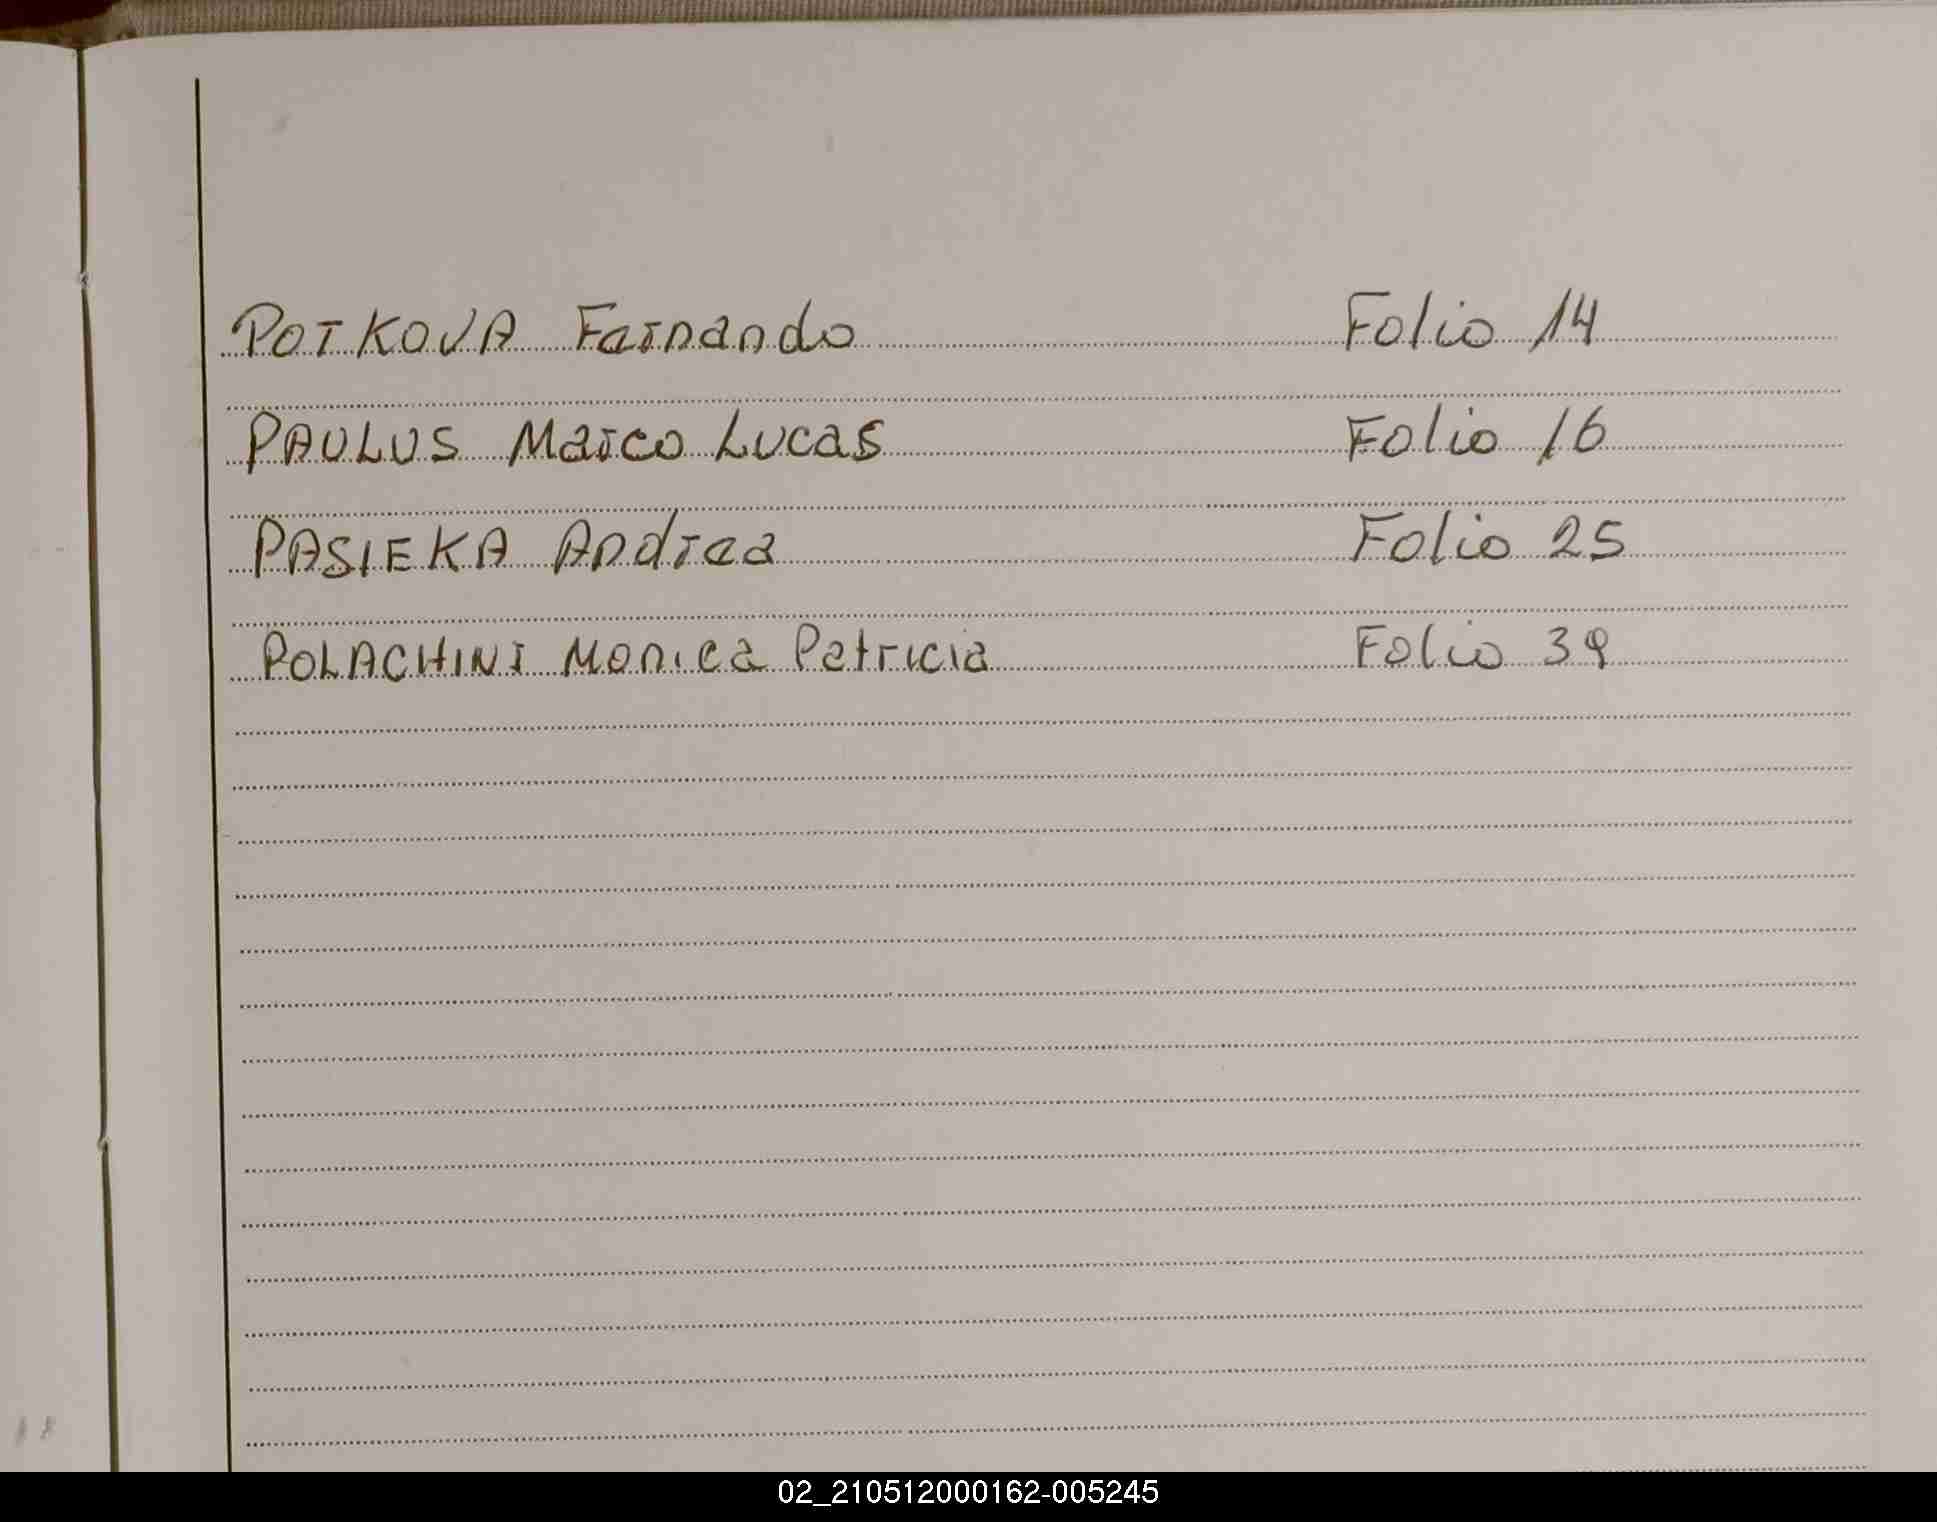 POTKOVA Fernando Folio 14
PAULUS Marco Lucas Folio 16
PASIEKA Andrea Folio 25
POLACHINI Monica Patricia Folio 39
02_210512000162-005245